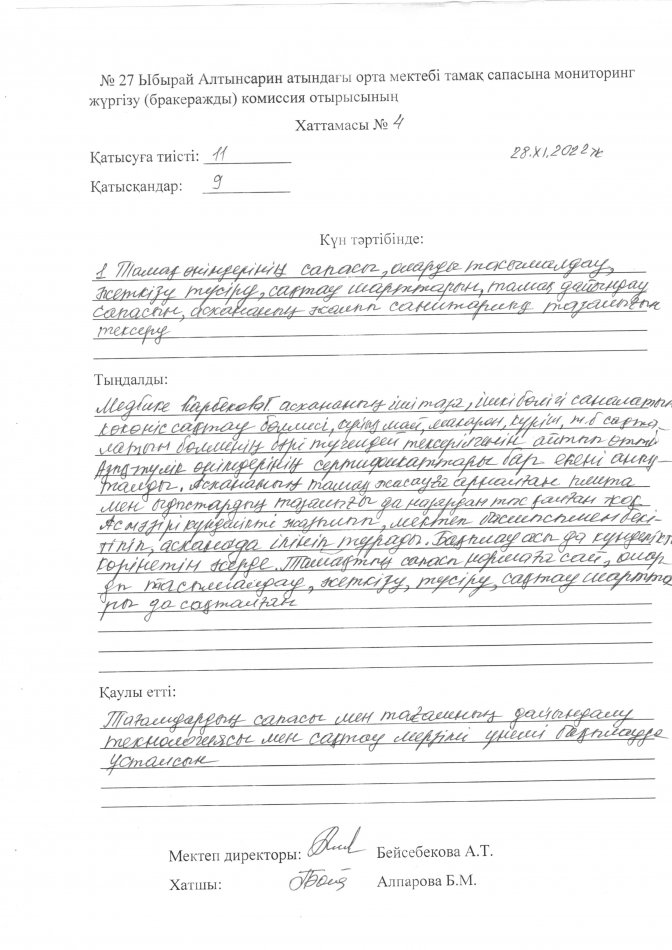 № 27 Ыбырай Алтынсарин атындағы орта мектебі тамақ сапасына мониторинг
жүргізу (бракеражды) комиссия отырысының
Хаттамасы № 4
Қатысуға тиісті: 11
28.XI.2022ж
Қатысқандар: 9
Күн тәртібінде:
1 Тамақ өніндерінің сапасы, оларды тасымалдау,
жеткізу түсіру, сақтау шарттарын, тамақ дайындау
сапасын, асхананың жалпы санитарлық тазалығын
тексеру
Тыңдалды:
асхананың іші таза, ішкі бөлігі саналатын
көкөніс сақтау бөлмесі, сұйық май, макарон, күріш, т.б сақта
латын бөлменің бәрі түгендей тексерілгенін айтып өтті
Азық түлік өніндерінің сертификаттары бар екені анық
талды. Асхананың тамақ жасауға арналған плита
мен ыдыстардың тазалығы да назардан тыс қалған жоқ
Ас мәзірі күнделікті жазылып, мектеп басшысымен бекі
тіліп, асханада ілініп тұрады. Бақылау ас да күнделікті
көрінетін жерде. Тамақтың сапасы нормаға сай, олар
ды тасымалдау, жеткізу, түсіру, сақтау шартта
ры да сақталған
Қаулы етті:
Тағамдардың сапасы мен тағамның дайындалу
технологиясы мен сақтау мерзімі үнемі бақылауда
ұсталсын
Мектеп директоры: Бейсебекова А.Т.
Хатшы: Алпарова Б.М.